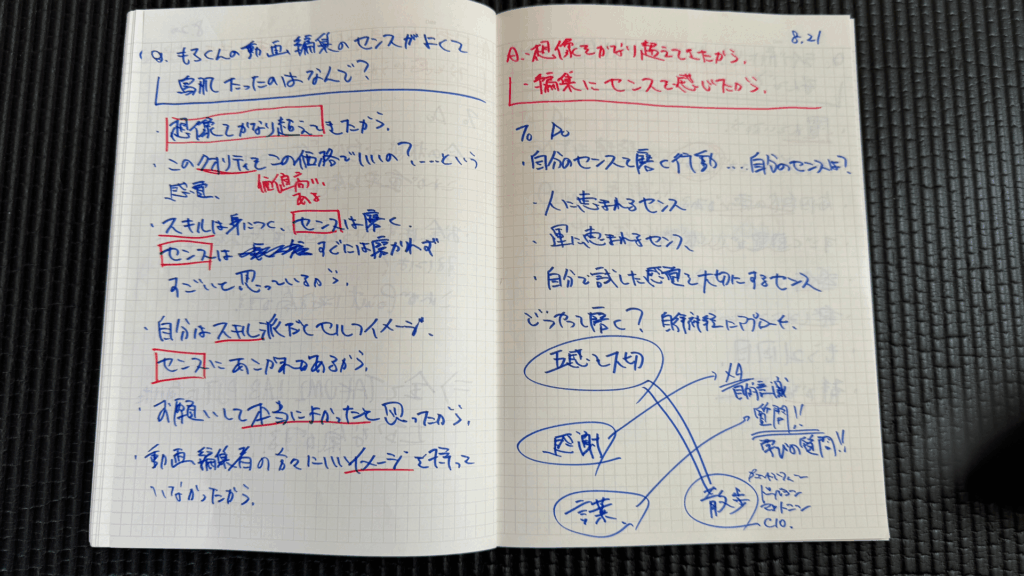 ・Q. もろくんの動画編集のセンスがよくて
鳥肌たったのはなんで?
・想像をかなり超えてきたから。
・このクオリティをこの価格でいいの?……という
感覚。
価値高い。
ある
・スキルは身につく、センスは磨く
センスは すぐには磨かれず
すごいと思っているから。
・自分はスキル派だとセルフイメージ。
センスにあこがれがあるから。
・お願いして本当によかったと思ったから。
・動画編集者の方々にいいイメージを持って
いなかったから。
8.21
A.・想像をかなり超えてきたから。
・編集にセンスを感じたから。
To Do
・自分のセンスを磨く行動…自分のセンスは?
・人に恵まれるセンス
・運に恵まれるセンス
・自分で試した感覚を大切にするセンス
どうやって磨く? 自律神経にアプローチ。
五感を大切
感謝
言葉
散歩
×4
質問!!
学びの質問!!
セロトニン
C10.